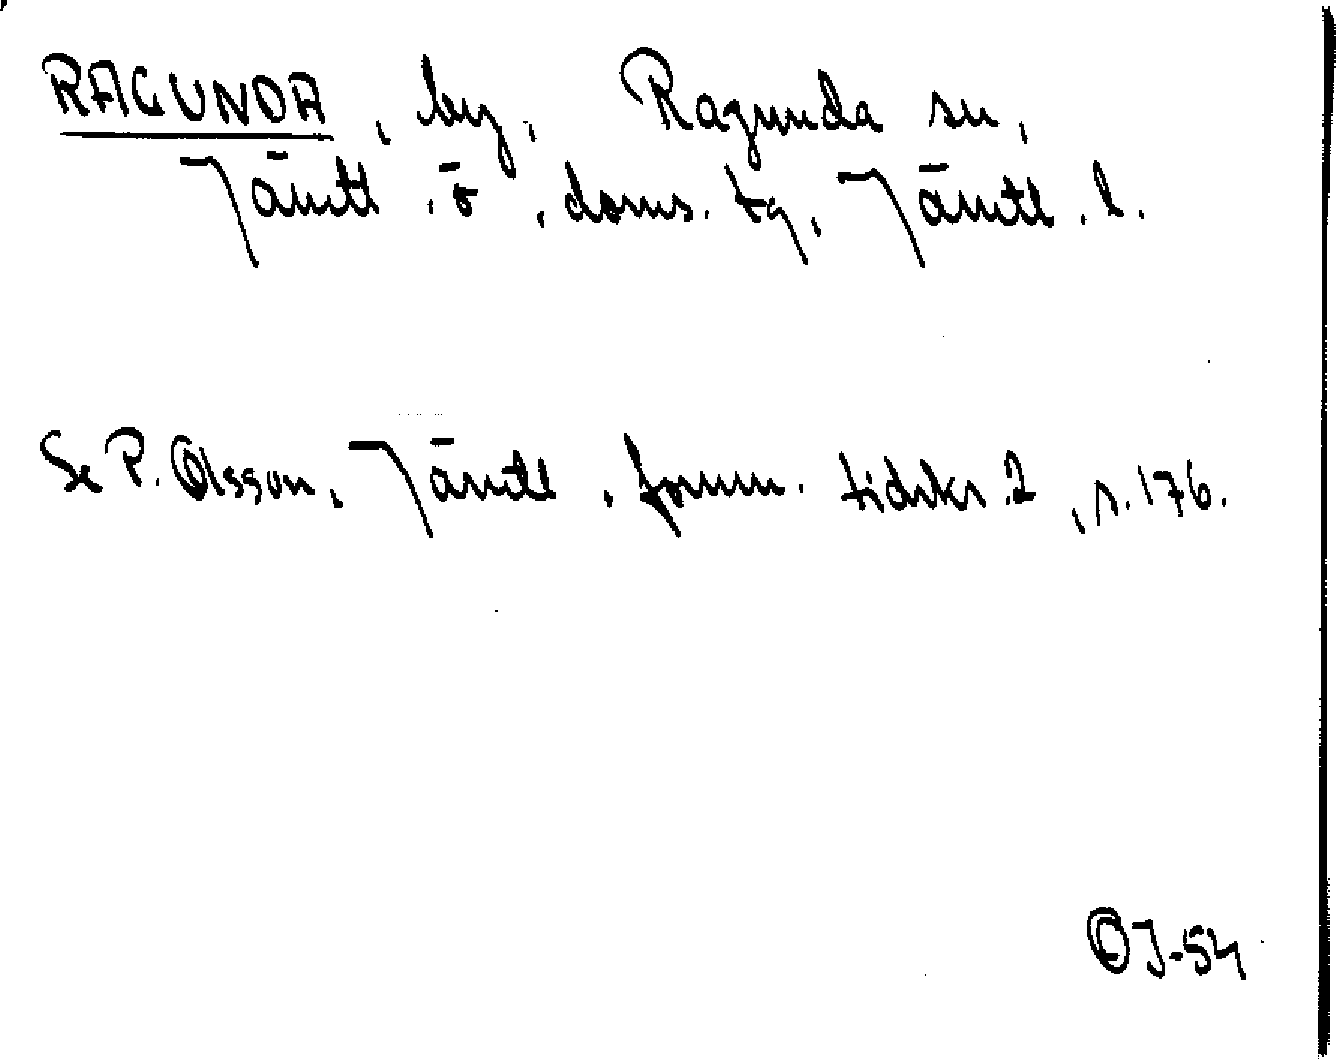 RAGUNDA, by, Ragunda sn,
Jämtl. ö, doms. tg, Jämtl. l.
Se P. Olsson, Jämtl. fornm. tidskr 2, s. 176.
OJ-54